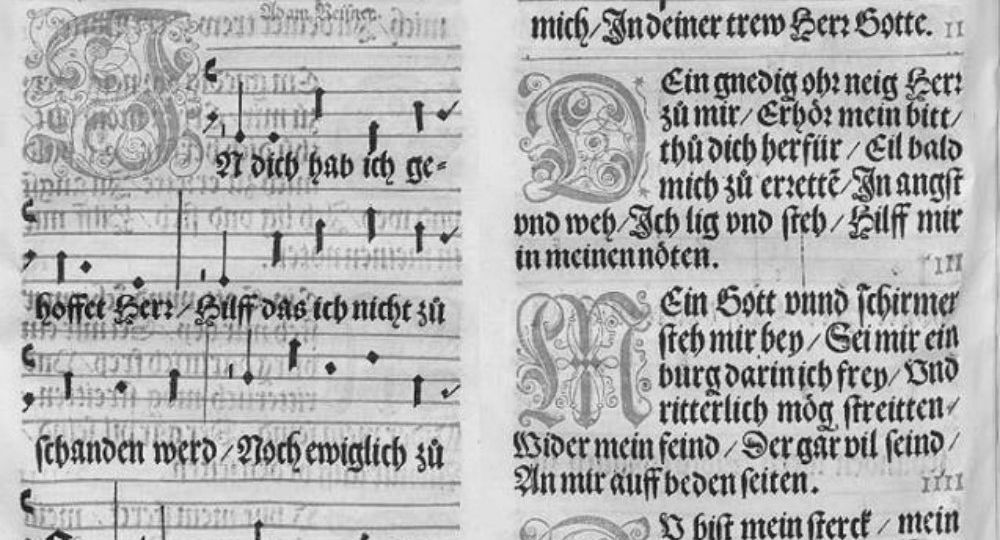 IN dich hab ich ge-
hoffet Herr / Hilff das ich nicht zů
schanden werd / Noch ewiglich zů
mich / In deiner trew Herr Gotte. II
DEin gnedig ohr neig Herr
zů mir / Erhör mein bitt /
thů dich herfür / Eil bald
mich zů errettē / In angst
vnd weh / Ich lig vnd steh / Hilff mir
in meinen nöten. III
MEin Gott vnnd schirmer
steh mir bey / Sei mir ein
burg darin ich frey / Vnd
ritterlich mög streitten /
Wider mein feind / Der gar vil seind /
An mir auff beden seiten. IIII
DV bist mein sterck / mein